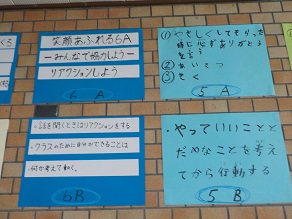 笑顔あふれる6A
ーみんなで協力しようー
リアクションしよう
6 A
① やさしくしてもらった
時に必ずありがとう
を言う
② あいさつ
③ きく
5 A
・話を聞くときはリアクションをする
・クラスのために自分ができることは
何か考えて動く。
6B
・やっていいことと
だめなことを考え
てから行動する
5 B